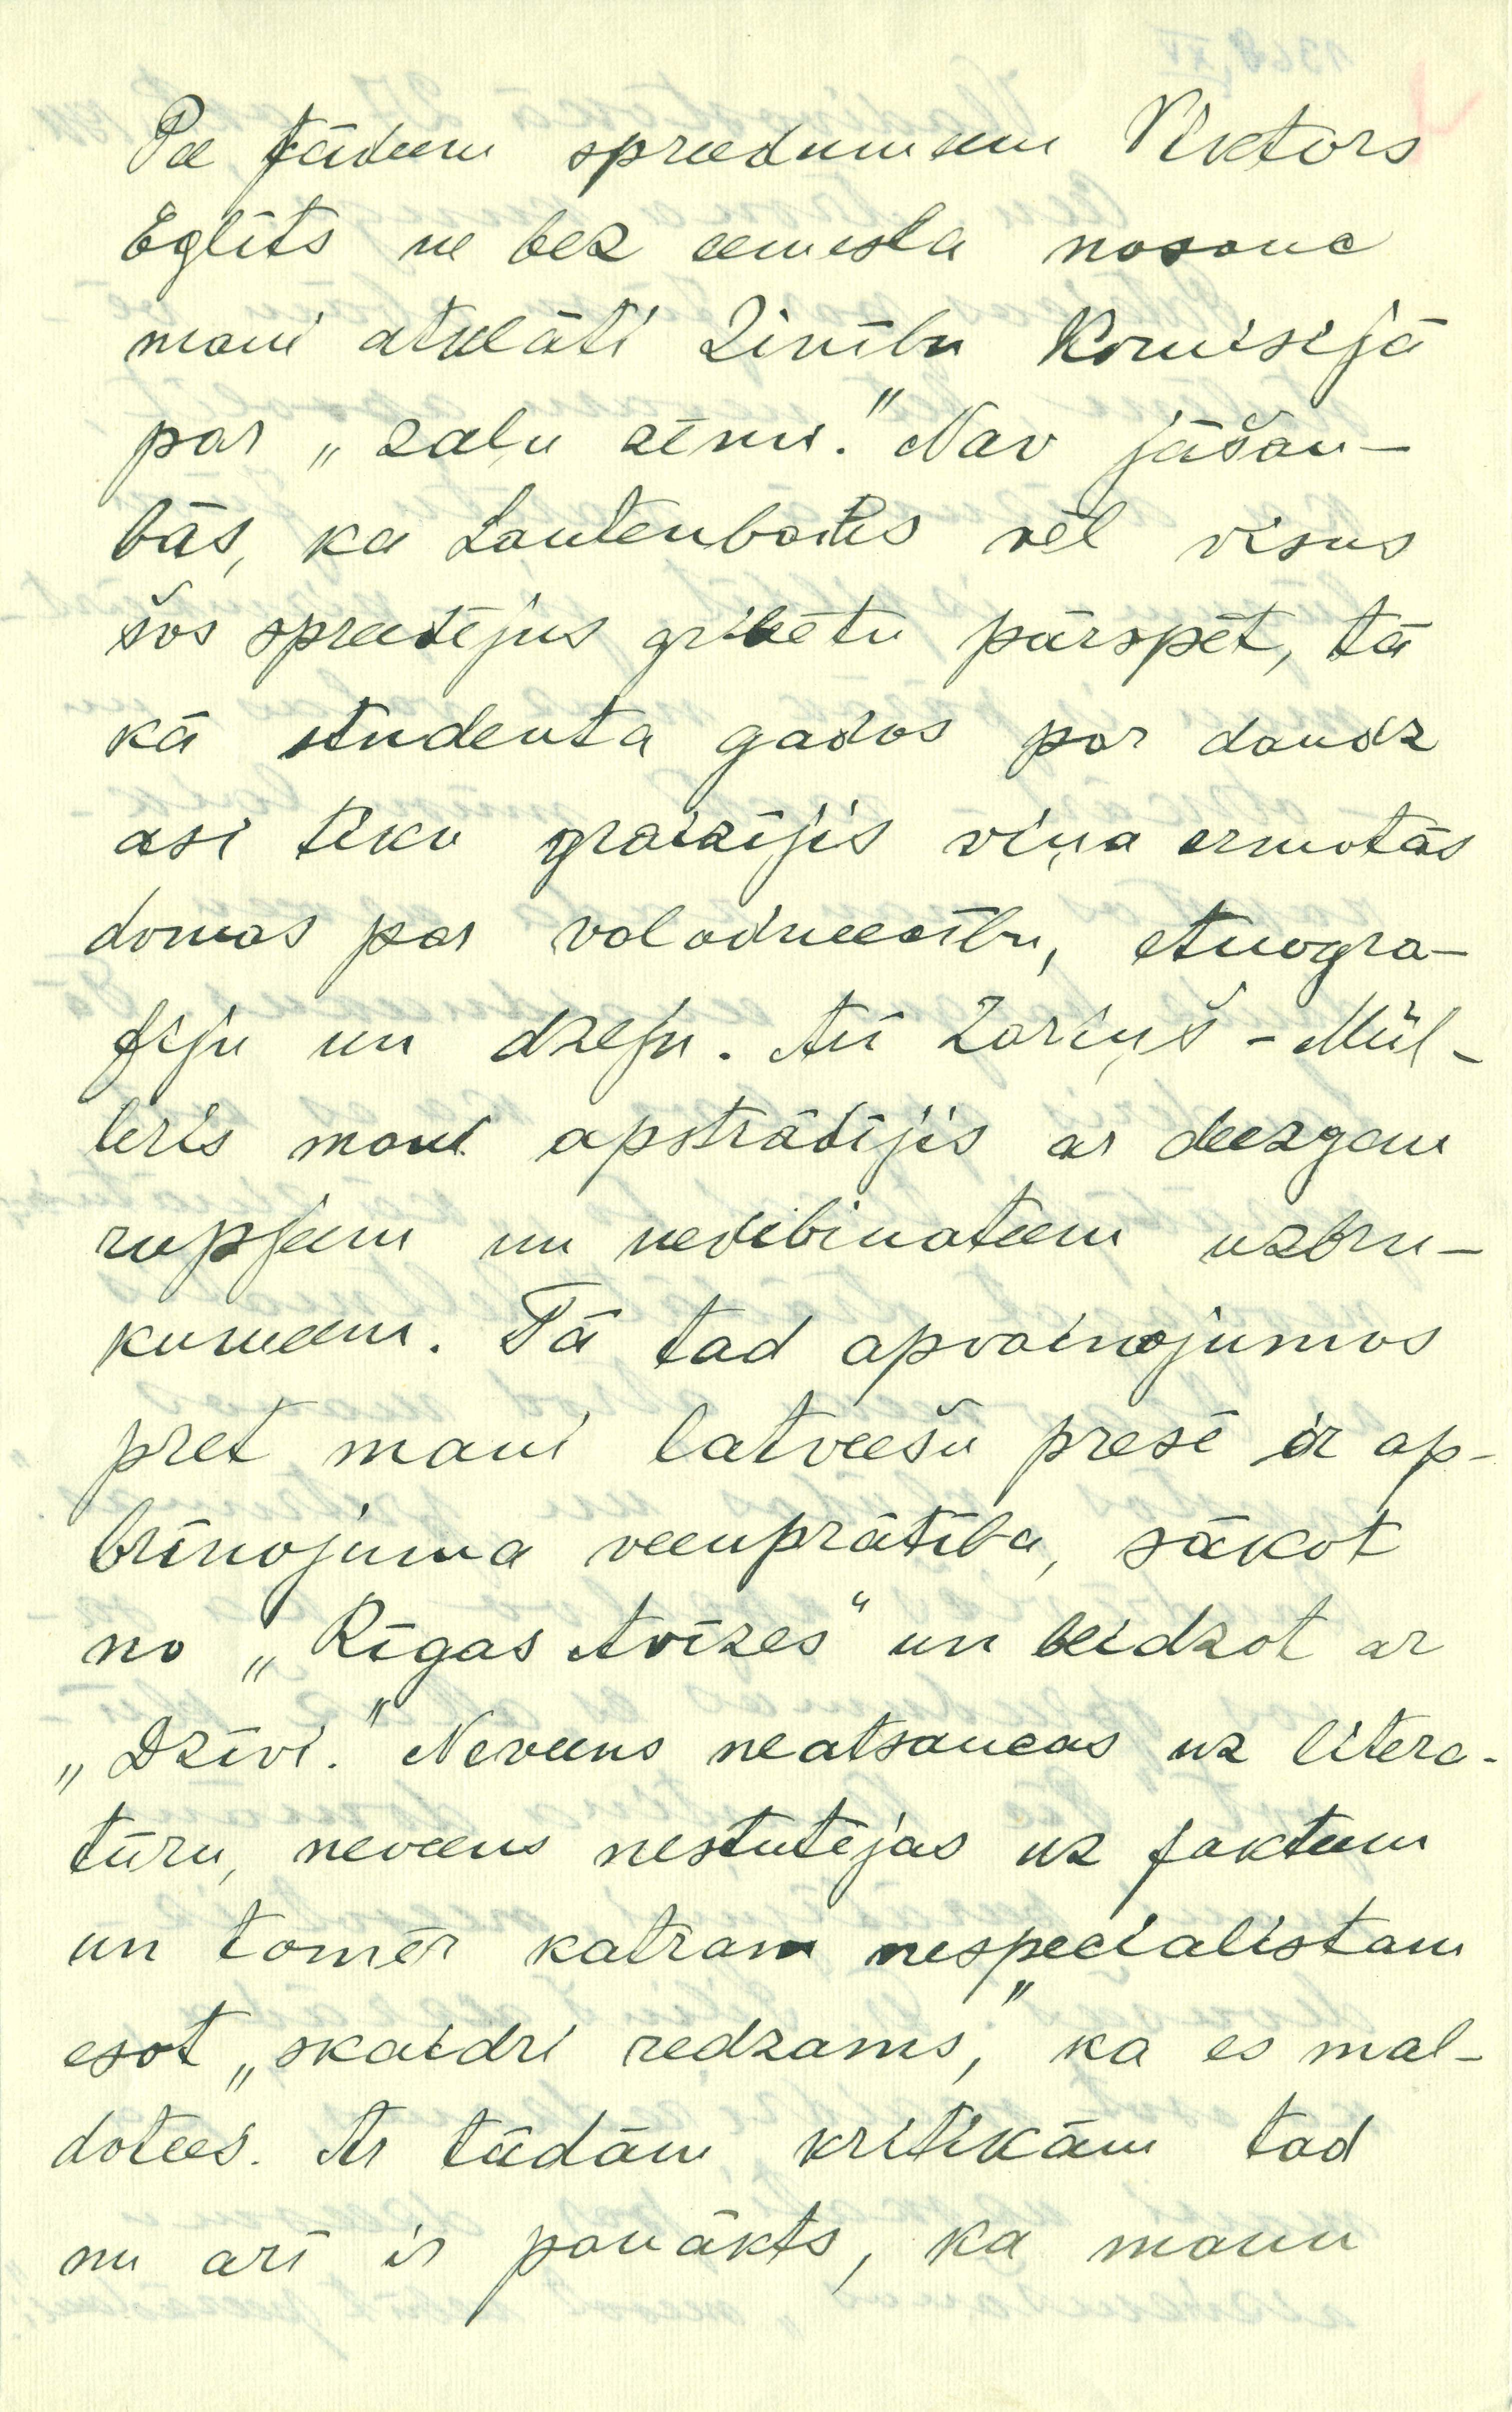 Pee tādeem spreedumeem Viktors
Eglīts ne bez eemesla nosauc
mani atklāti Zinību Komisijā
par „zaļu zēnu." Nav jāšau-
bās, ka Lautenbachs vēl visus
šos spreedējus gribētu pārspēt, tā
kā studenta gados par daudz
asi tiku graizījis viņa ermotās
domas par valodneecību, etnogra-
fiju un dzeju. Arī Zariņš-Mül-
leris mani apstrādājis ar deezgan
rupjeem un nedibinateem uzbru-
kumeem. Tā tad apvainojumos
pret mani latveešu presē ir ap-
brīnojuma veenprātība, sākot
no „Rīgas Avīzes" un beidzot ar
„Dzīvi." Neveens neatsaucas uz litera-
tūru, neveens nestutējas uz fakteem
un tomēr katram nespecialistam
esot „skaidri redzams," ka es mal-
dotees. Ar tādām kritikām tad
nu arī ir panākts, ka manu